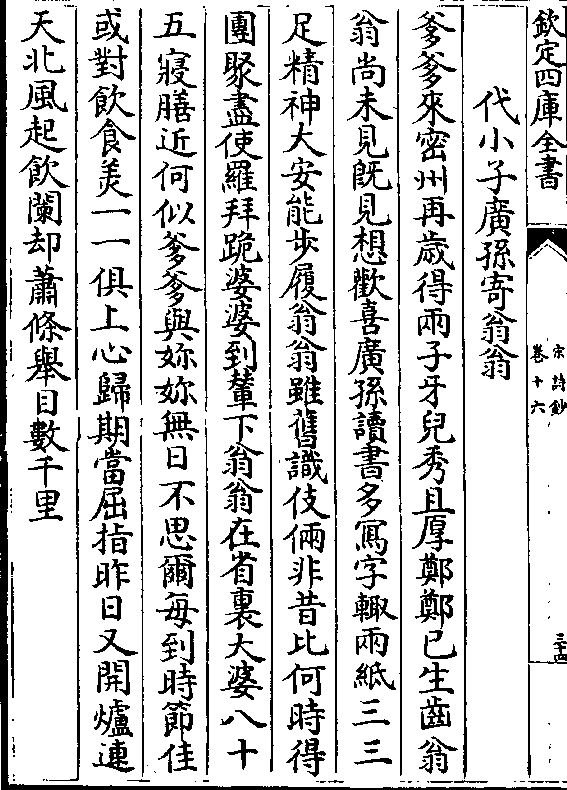 欽定四庫全書
宋詩鈔
卷十六
三十四
代小子廣孫寄翁翁
爹爹來密州再歲得兩子牙兒秀且厚鄭鄭已生齒翁
翁尚未見既見想歡喜廣孫讀書多寫字輙兩紙三三
足精神大安能步履翁翁雖舊識伎倆非昔比何時得
團聚盡使羅拜跪婆婆到輦下翁翁在省裏大婆八十
五寢膳近何似爹爹與妳妳無日不思爾每到時節佳
或對飲食羙一一俱上心歸期當屈指昨日又開爐連
天北風起飲闌却蕭條舉目數千里